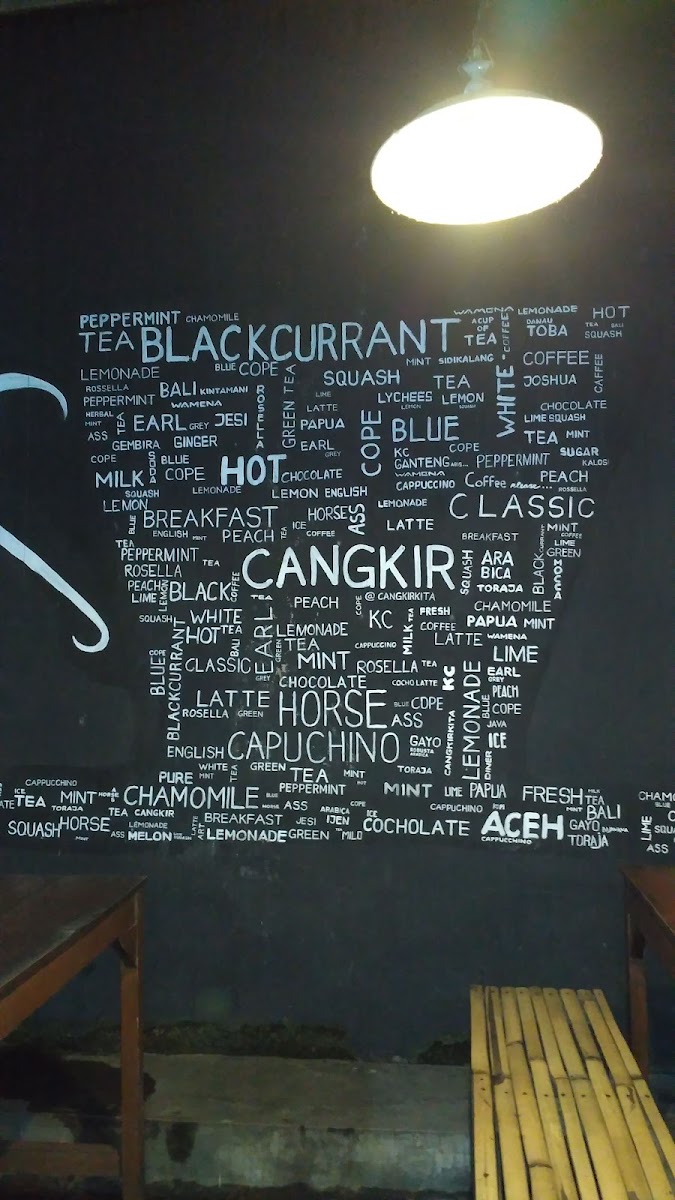 PEPPERMINT CHAMOMILE WAMENA LEMONADE HOT
TEA BLACKCURRANT A CUP OF TEA COFFEE DANAU TOBA TEA BALI SQUASH
MINT SIDIKALANG WHITE COFFEE
LEMONADE BLUE COPE GREEN TEA SQUASH TEA JOSHUA CAFFEE
ROSSELLA BALI KINTAMANI ROSELLA LIME LYCHEES LEMON
PEPPERMINT WAMENA LATTE LEMON SQUASH CHOCOLATE
HERBAL MINT TEA EARL GREY JESI PAPUA COPE BLUE LIME SQUASH
ASS GEMBIRA GINGER EARL GREY COPE TEA MINT
COPE SQUASH BLUE KC GANTENG PEPPERMINT SUGAR KALOSI
MILK COPE HOT CHOCOLATE WAMENA CAPPUCCINO Coffee please... PEACH ROSSELLA
SQUASH LEMONADE LEMON ENGLISH LEMONADE CLASSIC
LEMON BLUE BREAKFAST HORSE ASS LATTE MINT
ENGLISH MINT PEACH TEA ICE COFFEE BREAKFAST BLACKCURRANT COFFEE LIME
TEA PEPPERMINT TEA CANGKIR SQUASH ARABICA GREEN
ROSELLA MOCCA
PEACH LEMON BLACK COFFEE TORAJA
LIME TEA PEACH COPE @CANGKIRKITA CHAMOMILE
SQUASH WHITE EARL GREY KC MILK TEA FRESH COFFEE PAPUA MINT
HOT TEA BALI LEMONADE LATTE WAMENA
BLUE COPE BLACKCURRANT GREEN TEA CAPPUCINO LIME
CLASSIC MINT ROSELLA TEA KC LEMONADE EARL GREY
CHOCOLATE COCHO LATTE BLUE PEACH
LATTE HORSE BLUE COPE COPE
ROSELLA GREEN ASS CANGKIRKITA JAVA
ENGLISH CAPUCHINO GAYO ROBUSTA ARABICA DINER ICE
WHITE GREEN TEA TEA MINT TORAJA
PURE MINT PEPPERMINT MINT LIME PAPUA FRESH MILK TEA
CAPPUCHINO
ICE TEA MINT HORSE CHAMOMILE BLUE MINT BALI
TORAJA TEA CANGKIR HORSE ASS ARABICA COPE CAPPUCHINO
SQUASH HORSE LEMONADE LATTE BREAKFAST JESI IJEN ICE COCHOLATE ACEH GAYO LIME SQUASH
ASS MINT MELON ART LEMONADE GREEN TEA MILO CAPPUCCHINO TORAJA ASS